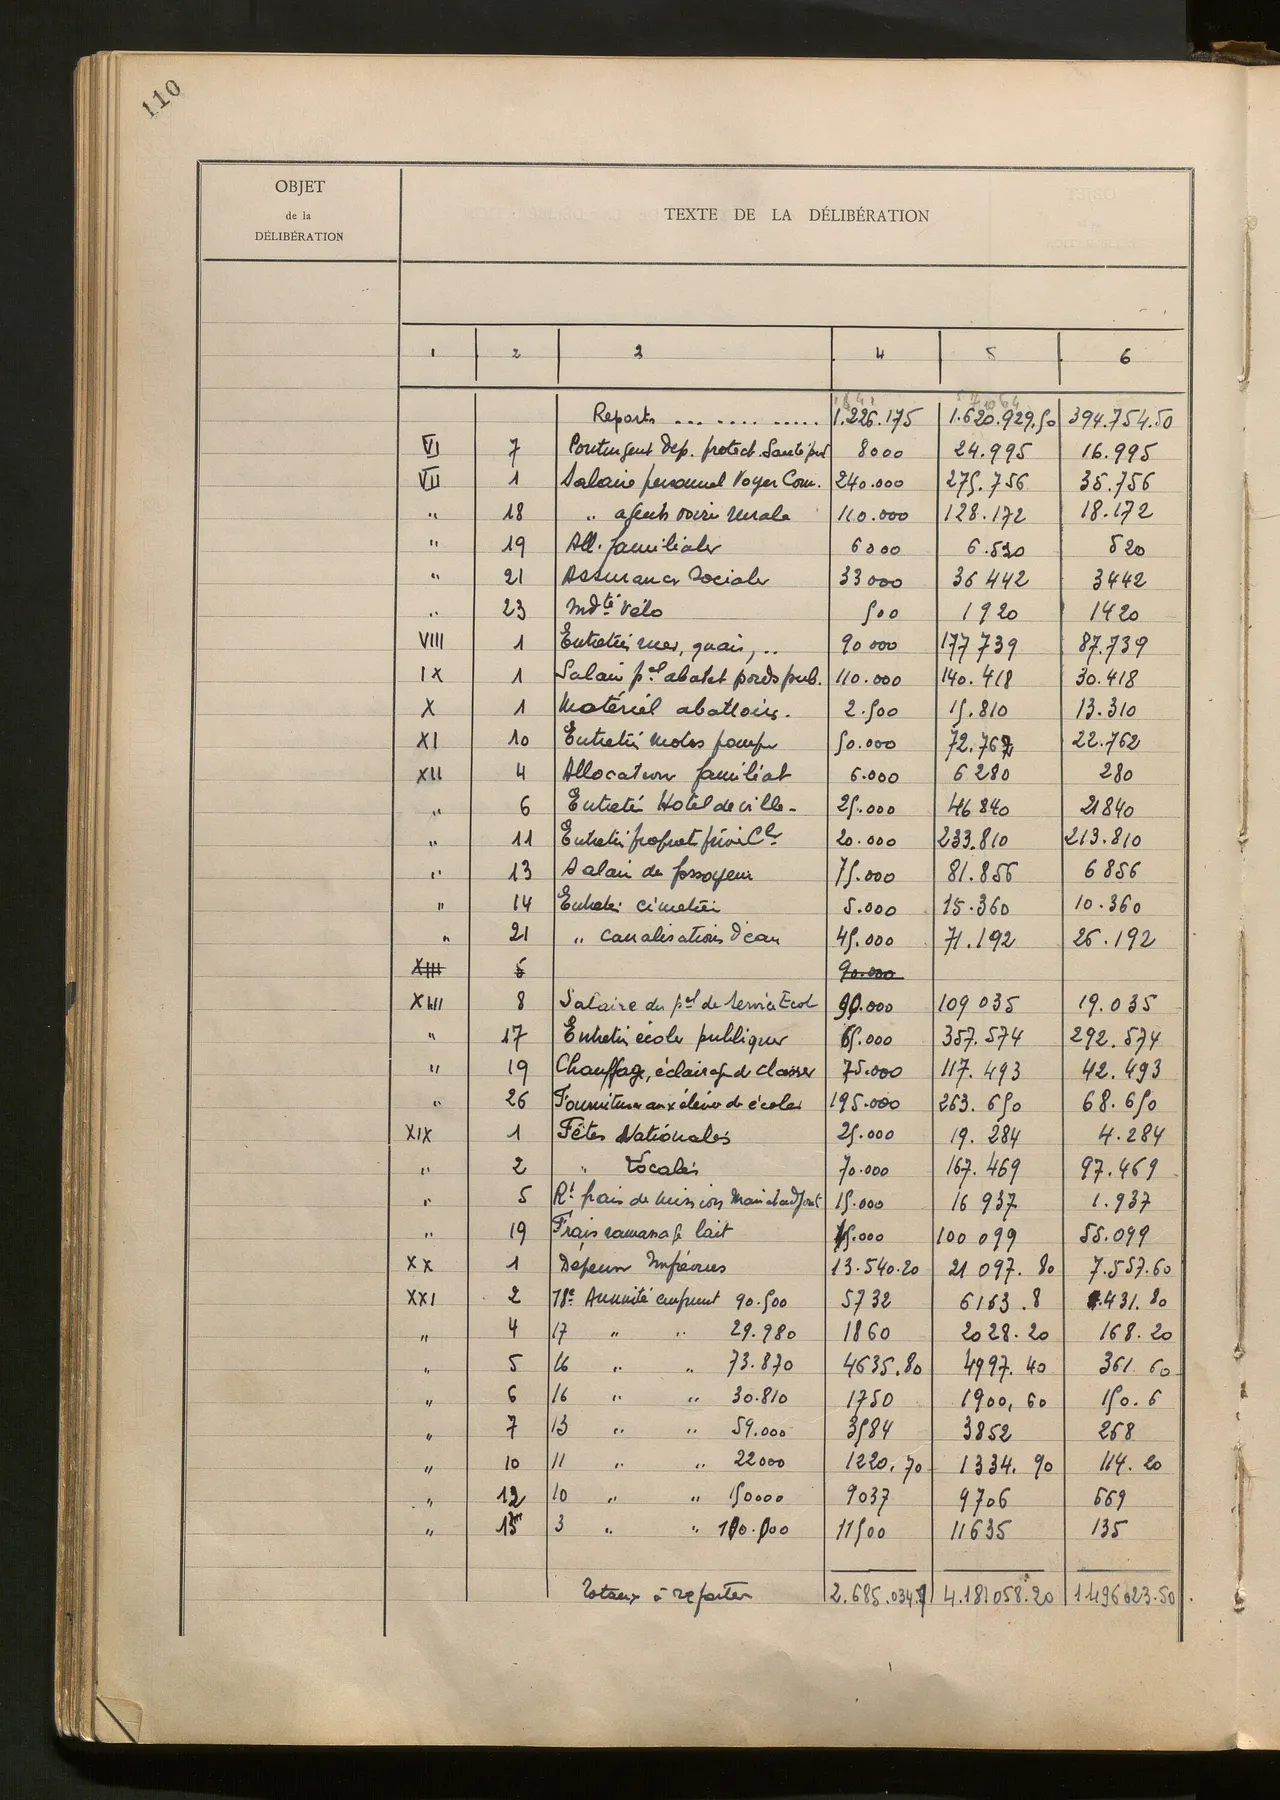 110
OBJET
de la
DÉLIBÉRATION
TEXTE DE LA DÉLIBÉRATION
1 2 3 4 5 6
Reports ... .... ..... 1.226.175 1.620.929.50 394.754.50
VI 7 Contingent Dep. protect. Santé pub 8000 24.995 16.995
VII 1 Salaire personnel Voyer Com. 240.000 275.756 35.756
" 18 " agents voirie rurale 110.000 128.172 18.172
" 19 All. familiales 6000 6.520 520
" 21 Assurances Sociales 33000 36442 3442
" 23 Indté Vélo 500 1920 1420
VIII 1 Entretien rues, quais, .. 90000 177739 87.739
IX 1 Salaire pel abat et poids pub. 110.000 140.418 30.418
X 1 Matériel abattoirs. 2.500 15.810 13.310
XI 10 Entretien motos pompe 50.000 72.762 22.762
XII 4 Allocation familial 6.000 6280 280
" 6 Entretien Hotel de ville - 25.000 46840 21840
" 11 Entretien propriétés privées Cles 20.000 233.810 213.810
" 13 Salaire du fossoyeur 75.000 81.856 6856
" 14 Entretien cimetière 5.000 15.360 10.360
" 21 " canalisations d'eau 45.000 71.192 26.192
XIII 5 90.000
XIII 8 Salaire du pel de service Ecol 90.000 109035 19.035
" 17 Entretien écoles publiques 65.000 357.574 292.574
" 19 Chauffage, éclairage de classes 75.000 117.493 42.493
" 26 Fournitures aux élèves des écoles 195.000 263.650 68.650
XIX 1 Fêtes Nationales 25.000 19.284 4.284
" 2 " Locales 70.000 167.469 97.469
" 5 Rt frais de mission Maire et adjoint 15.000 16937 1.937
" 19 Frais ramassage lait 45.000 100099 55.099
XX 1 Dépenses Imprévues 13.540.20 21097.80 7.557.60
XXI 2 18e Annuité emprunt 90.500 5732 6163.8 431.80
" 4 17 " " 29.980 1860 2028.20 168.20
" 5 16 " " 73.870 4635.80 4997.40 361.60
" 6 16 " " 30.810 1750 1900,60 150.6
" 7 13 " " 59.000 3584 3852 268
" 10 11 " " 22000 1220.70 1334.90 114.20
" 12 10 " " 150000 9037 9706 669
" 15 3 " " 100.000 11500 11635 135
Totaux à reporter 2.685.034.7 4.181058.20 1.496023.50